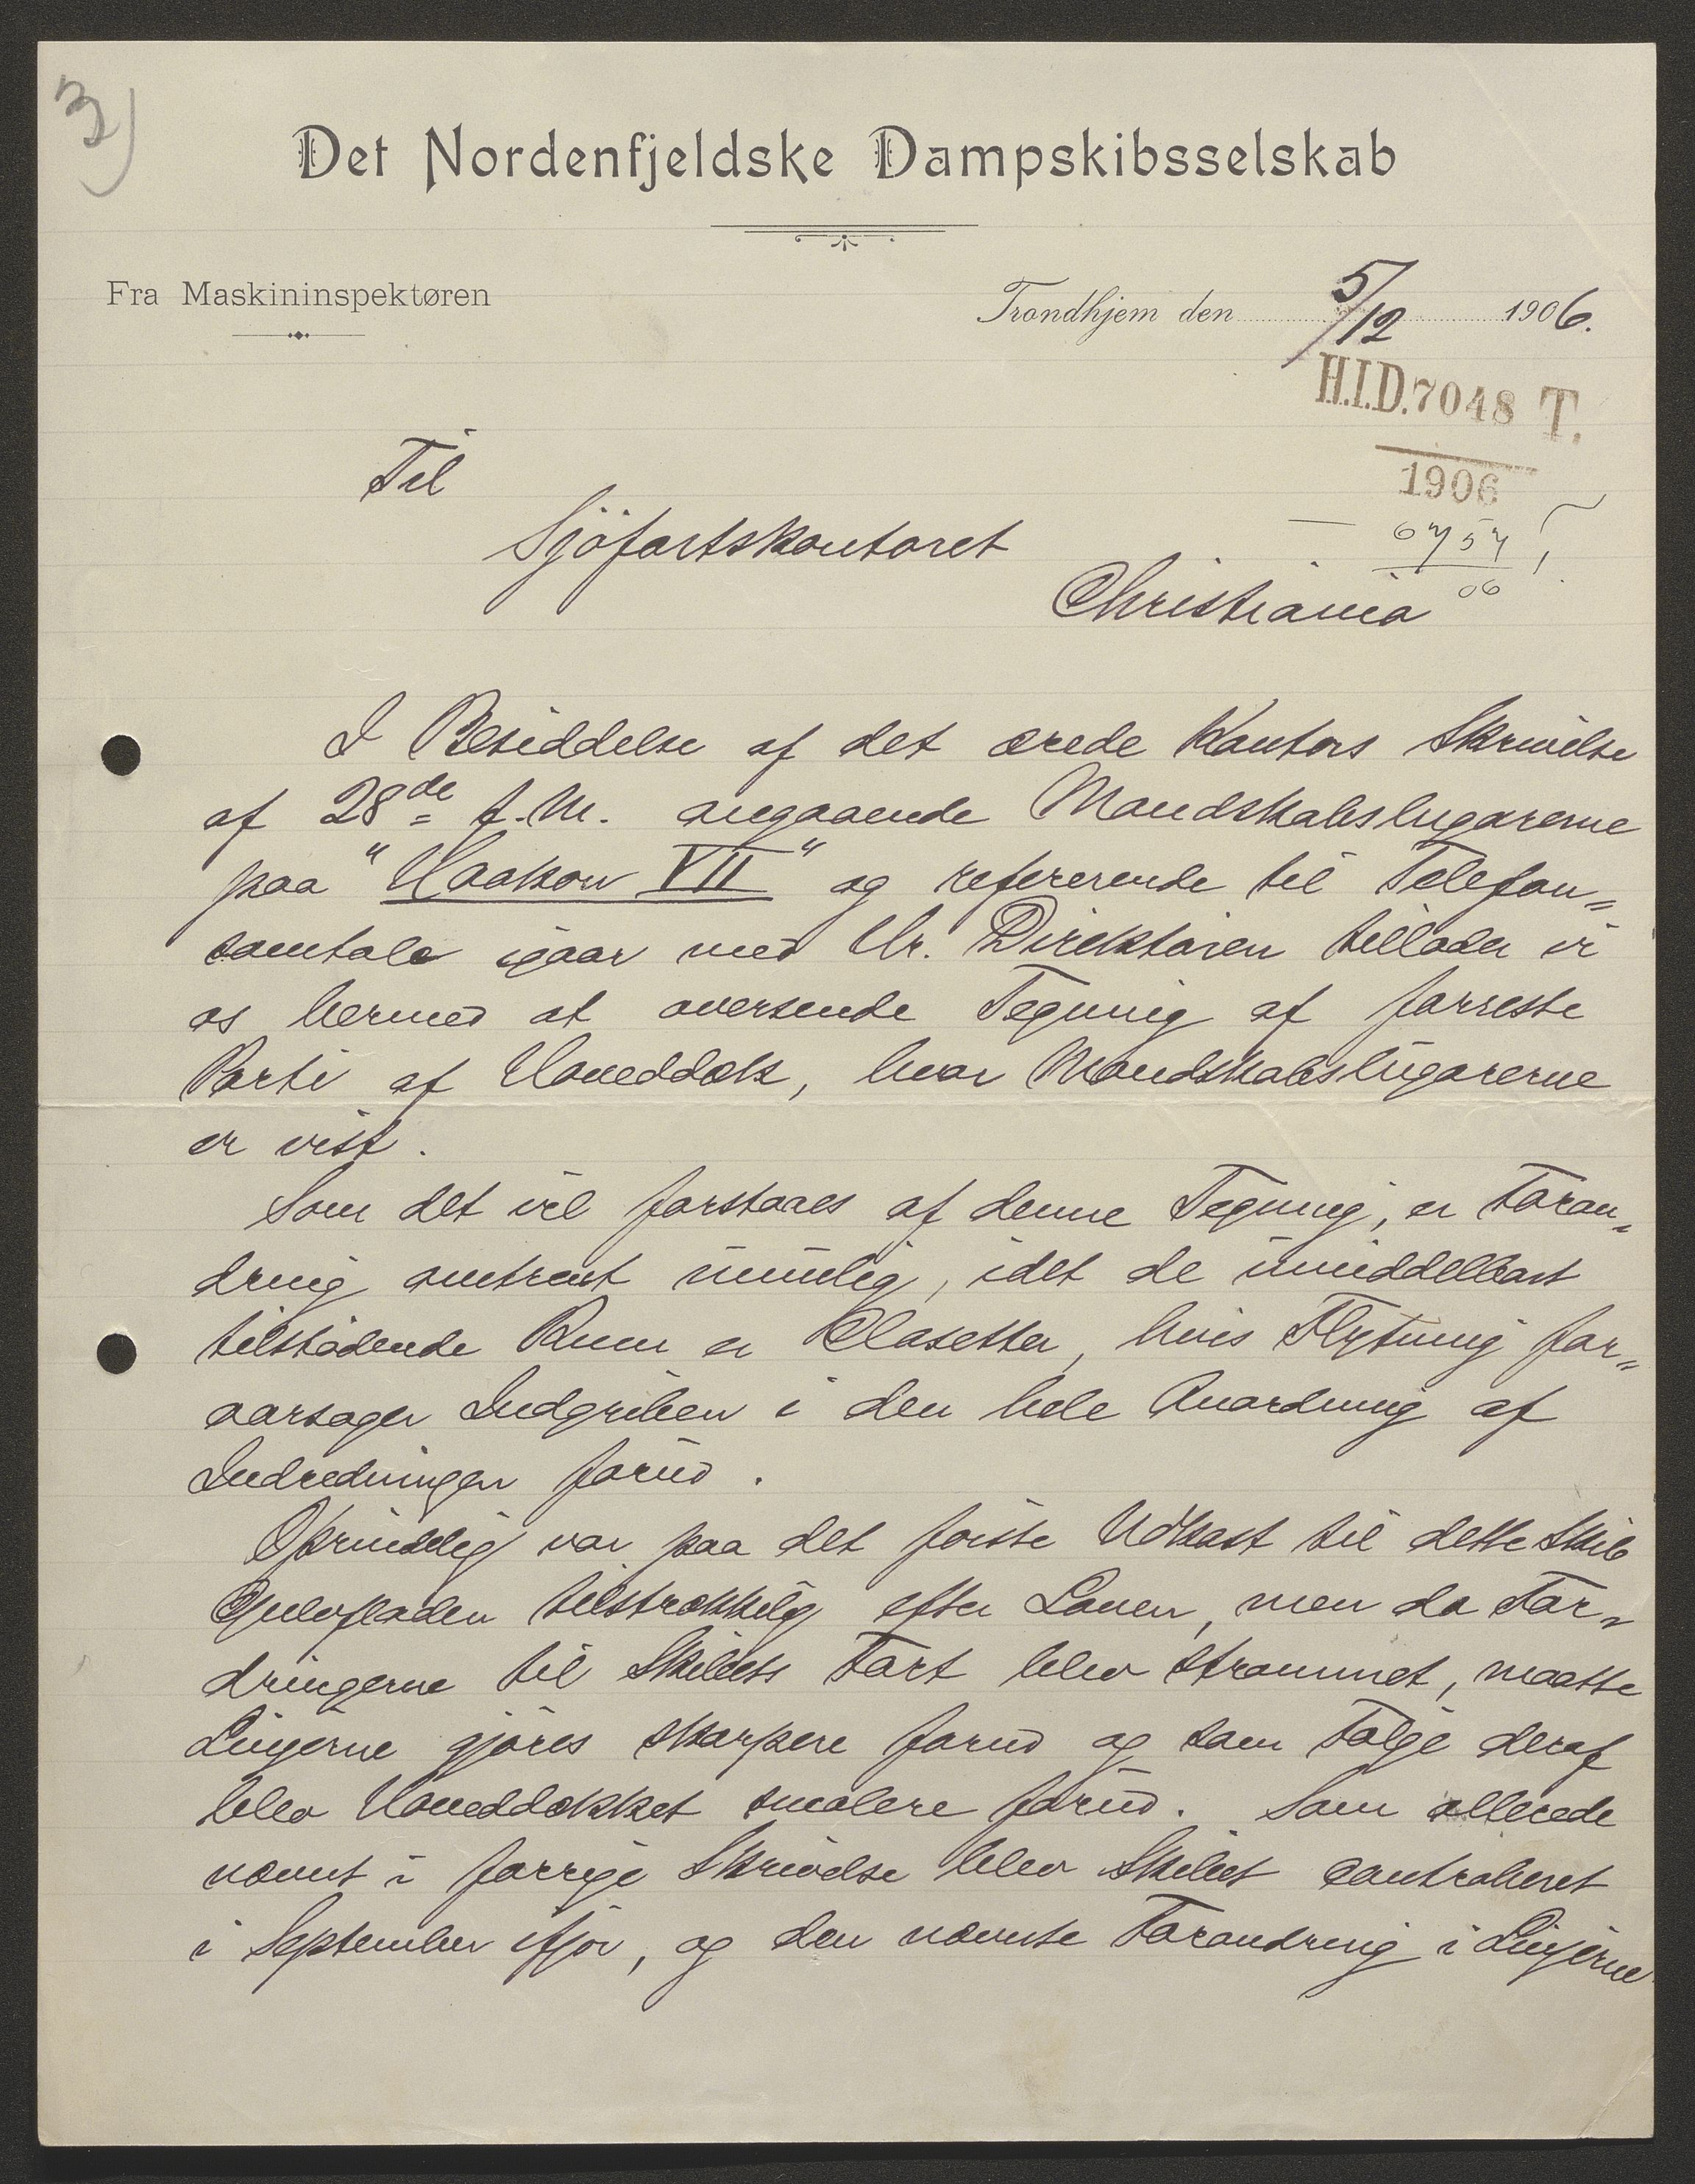 3)
Det Nordenfjeldske Dampskibsselskab
Fra Maskininspektøren
Trondhjem den 5/12 1906.
H.I.D. 7048 T.
1906
Til
Sjöfartskontoret
6757
06
Christiania
I Besiddelse af det ærede Kontors Skrivelse
af 28de f.M. angaaende Mandskabslugarerne
paa "Haakon VII" og refererende til Telefon-
samtale igaar med Hr. Direktören tillader vi
os hermed at oversende Tegning af forreste
Parti af Hoveddæk, hvor Mandskabslugarerne
er vist.
Som det vil forstaaes af denne Tegning, er Foran-
dring omtrent umulig, idet de umiddelbart
tilstödende Rum er Klosetter, hvis Flytning for-
aarsager Indgriben i den hele Anordning af
Indredningen forud.
Oprindelig var paa det förste Udkast til dette Skib
Gulvfladen tilstrækkelig efter Loven, men da For-
dringerne til Skibets Fart blev strammet, maatte
Linjerne gjöres skarpere forud og som Fölge deraf
blev Hoveddækket smalere forud. Som allerede
nævnt i forrige Skrivelse blev Skibet contraheret
i September ifjor, og den nævnte Forandring i Linjerne